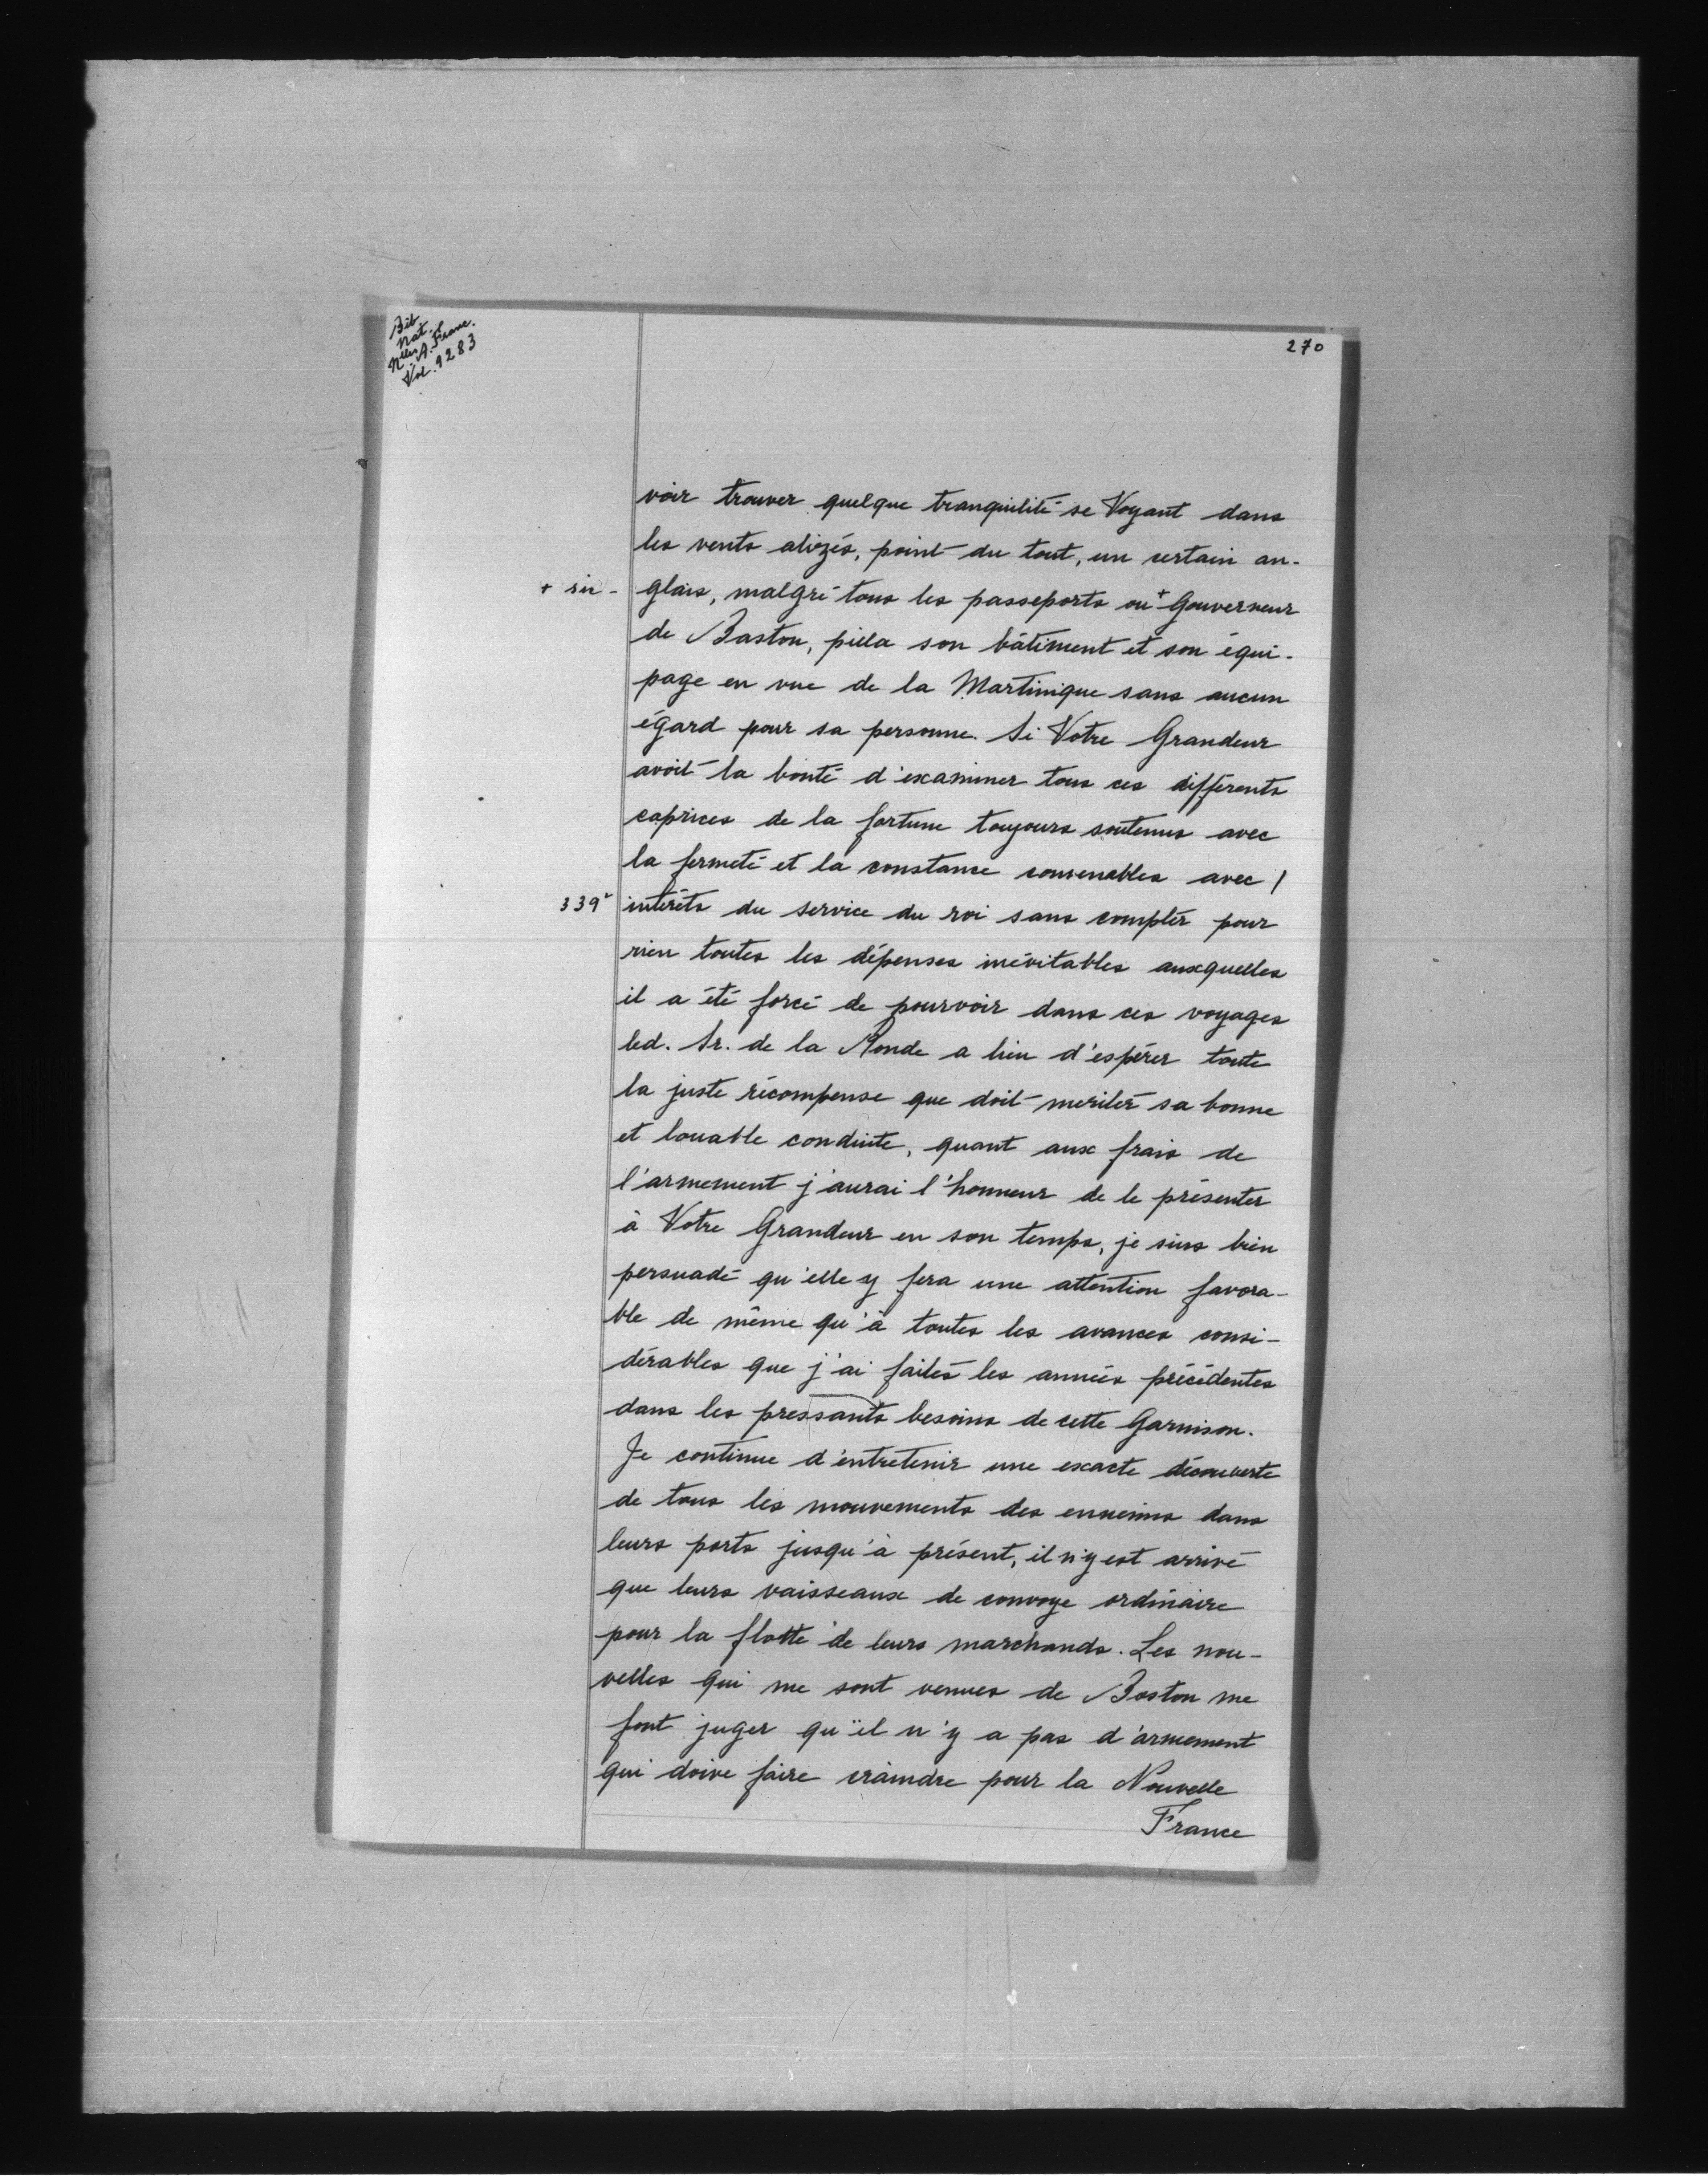 Bib
Nat.
Nlles A. Franc.
Vol. 9283
270
voir trouver quelque tranquilité se Voyant dans
les vents alizés, point du tout, un certain an-
+ sir - glais, malgré tous les passeports ou + Gouverneur
de Baston, pilla son bâtiment et son équi-
page en vue de la Martinique sans aucun
égard pour sa personne. Si Votre Grandeur
avoit la bonté d'examiner tous ces différents
caprices de la fortune toujours soutenus avec
la fermeté et la constance convenables avec /
339v intérêts du service du roi sans compter pour
rien toutes les dépenses inévitables auxquelles
il a été forcé de pourvoir dans ces voyages
led. Sr. de la Ronde a lieu d'espérer toute
la juste récompense que doit meriter sa bonne
et louable conduite, quant aux frais de
l'armement j'aurai l'honneur de le présenter
à Votre Grandeur en son temps, je suis bien
persuadé qu'elle y fera une attention favora-
ble de même qu'à toutes les avances consi-
dérables que j'ai faites les années précédentes
dans les pressants besoins de cette Garnison.
Je continue d'entretenir une exacte découverte
de tous les mouvements des ennemis dans
leurs ports jusqu'à présent, il n'y est arrivé
que leurs vaisseaux de convoye ordinaire
pour la flotte de leurs marchands. Les nou-
velles qui me sont venues de Boston me
font juger qu'il n'y a pas d'armement
qui doive faire craindre pour la Nouvelle
France